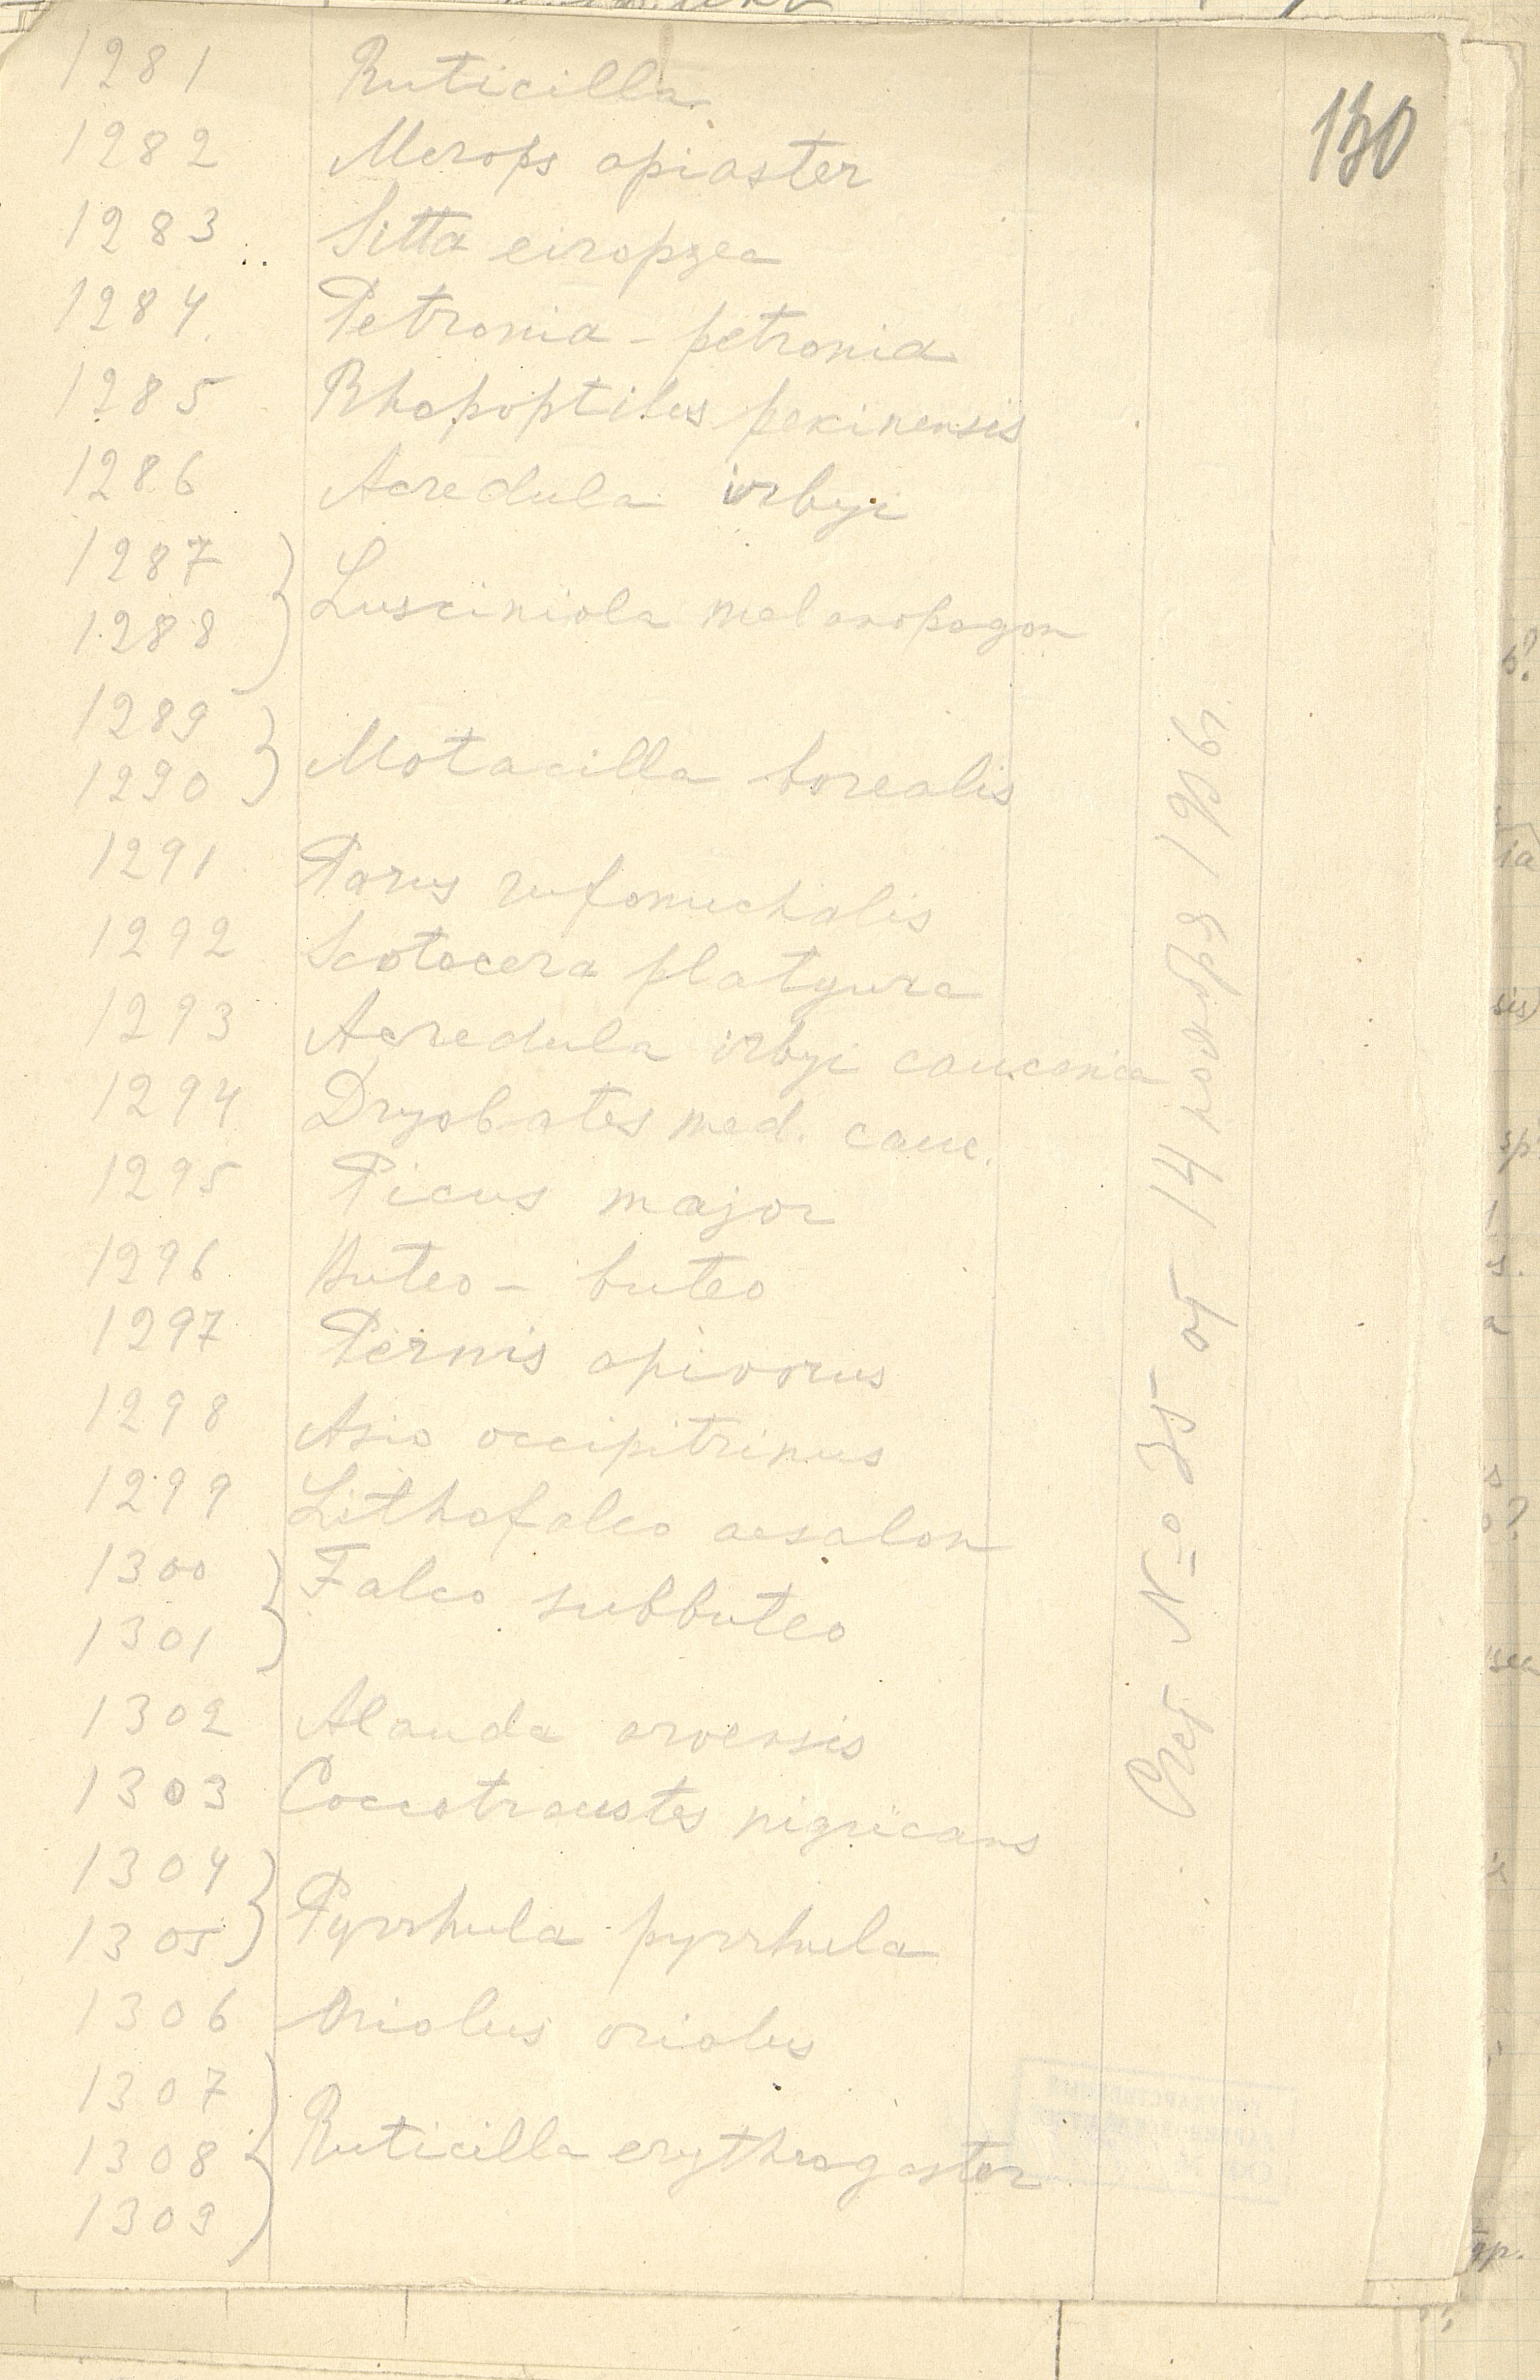 130
1281 Ruticilla
1282 Merops apiaster
1283 Sitta eiropzea
1284. Petronia - petronia
1285 Rhopoptilus pekinensis
1286 Acredula irbyi
1287
1288 } Lusciniola melanopogon
1289
1290 } Motacilla borealis
1291 Parus rufonuchalis
1292 Scotocera platyura
1293 Acredula irbyi caucanica
1294 Dryobates med. cauc.
1295 Picus major
1296 Buteo - buteo
1297 Pernis apivorus
1298 Asio accipitrinus
1299 Lithofalco aesalon
1300
1301 } Falco subbuteo
1302 Alauda arvensis
1303 Coccotraustes nigricans
1304
1305 } Pyrrhula pyrrhula
1306 Oriolus oriolus
1307
1308
1309 } Ruticilla erythrogaster
Счет № 35 от 14 ноября 1936г.